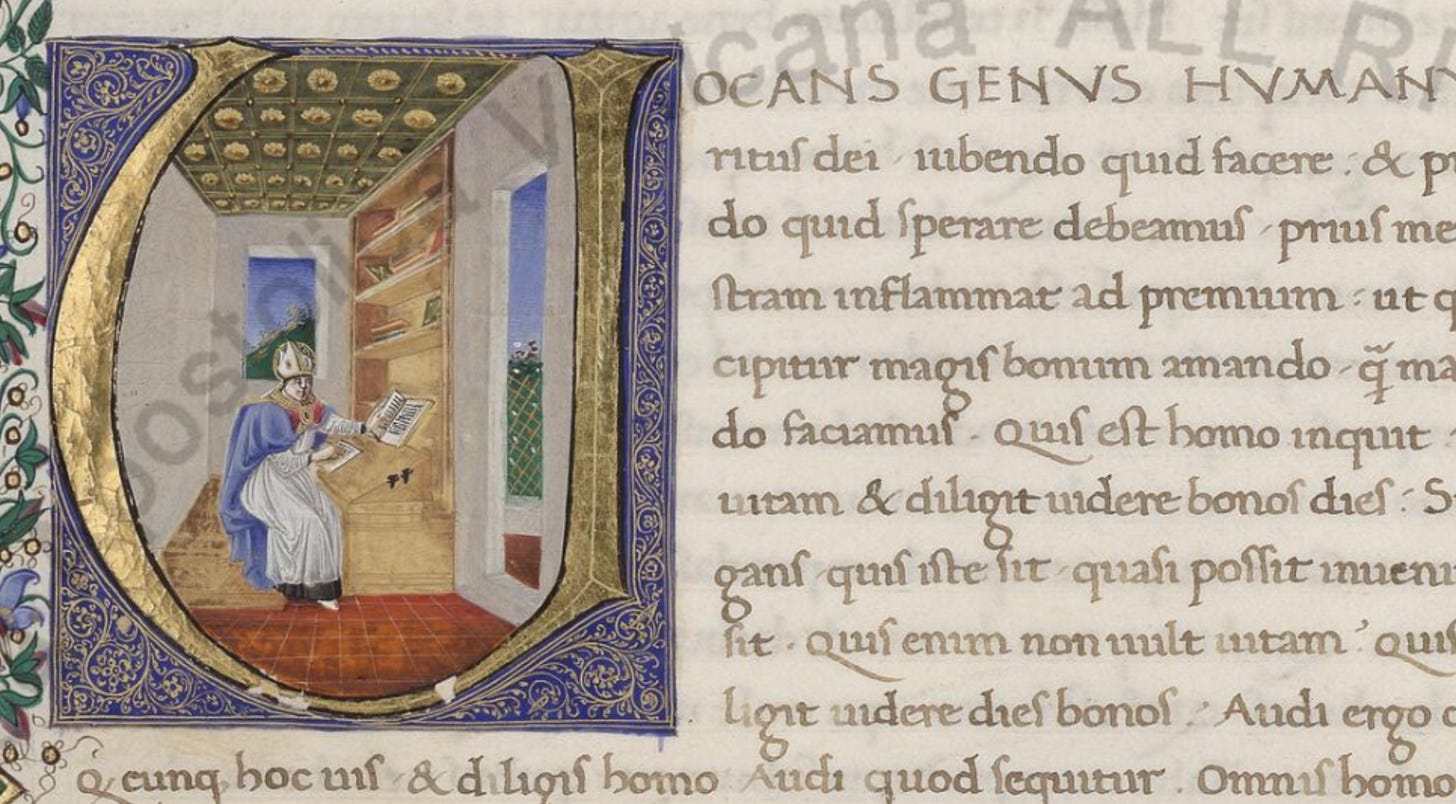 VOCANS GENVS HVMANV
rituſ dei iubendo quid facere : & p
do quid ſperare debeamuſ prius me
ſtram inflammat ad premium : ut q
cipitur magiſ bonum amando q̃ ma
do faciamuſ . Quiſ eſt homo inquit
uitam & diligit uidere bonoſ dieſ : S
ganſ quiſ iſte ſit quaſi poſſit inueni
ſit . Quiſ enim non uult uitam ? Quiſ
ligit uidere dieſ bonoſ . Audi ergo
cunq hoc uiſ & diligiſ homo Audi quod ſequitur . Omniſ homo